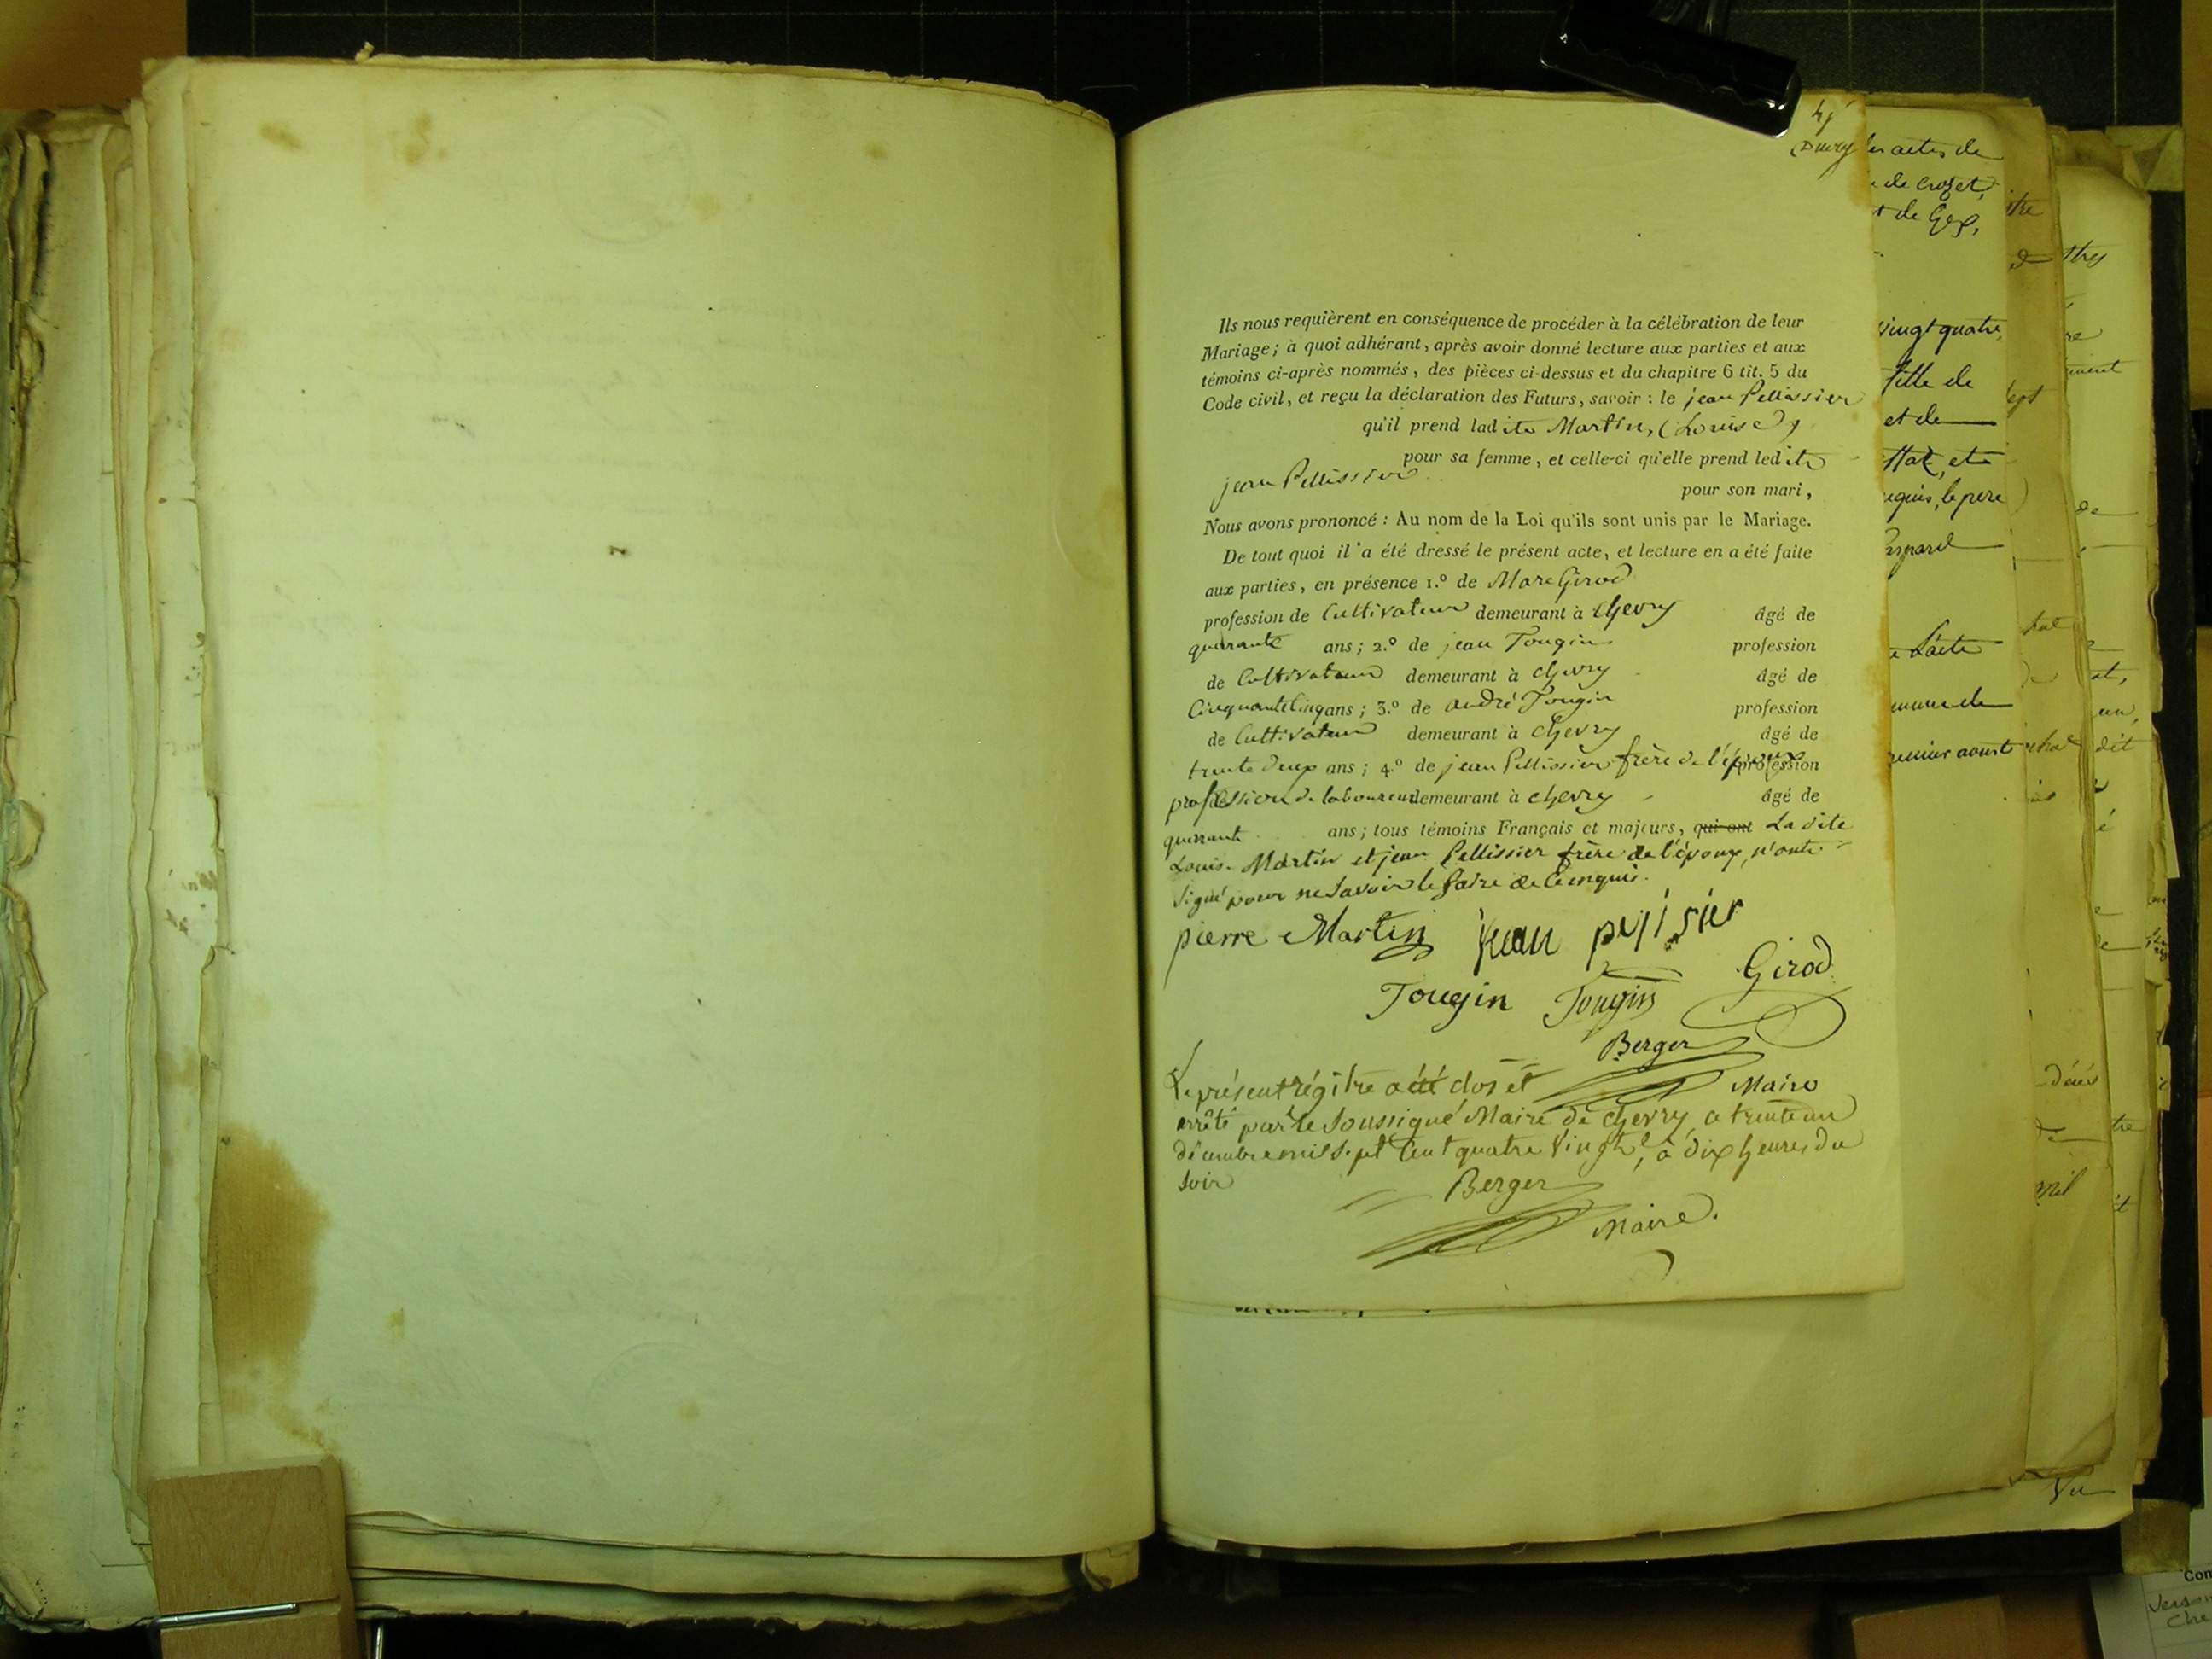 4
Ils nous requièrent en conséquence de procéder à la célébration de leur
Mariage; à quoi adhérant, après avoir donné lecture aux parties et aux
témoins ci-après nommés, des pièces ci-dessus et du chapitre 6 tit. 5 du
Code civil, et reçu la déclaration des Futurs, savoir : le jean Pellissier
qu'il prend ladite Martin, (Louise)
pour sa femme, et celle-ci qu'elle prend ledite
jean Pellissier
pour son mari,
Nous avons prononcé : Au nom de la Loi qu'ils sont unis par le Mariage.
De tout quoi il a été dressé le présent acte, et lecture en a été faite
aux parties, en présence 1.º de Marc Girod
profession de Cultivateur demeurant à chevry âgé de
quarante ans; 2.º de jean Tougin profession
de Cultivateur demeurant à chevry âgé de
Cinquante Cinq ans; 3.º de andré Tougin profession
de Cultivateur demeurant à chevry âgé de
trente deux ans; 4.º de jean Pellissier frère de l'époux profession
profession de laboureur demeurant à chevry âgé de
quarante ans; tous témoins Français et majeurs, qui ont La dite
Louise Martin et jean Pellissier frère de l'époux, n'ont
signé pour ne savoir le faire de ce enquis.
pierre Martin jean pellisier
Girod
Tougin Tougin
Berger
Maire
Le présent régitre a été clos et
arrêté par le soussigné Maire de chevry, a trente un
décembre mil sept cent quatre vingt, à dix heures du
soir
Berger
Maire.
les actes de
de Crozet,
de Gex,
vingt quatre
fille de
et de
le père
L'acte
aoust
dit
mil
Vu